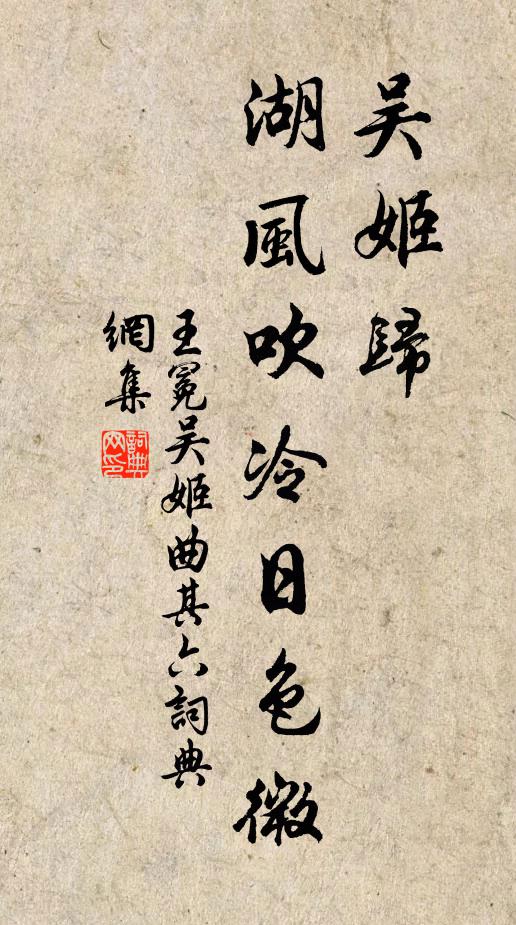 吴姬歸
湖風吹冷日色微
王冕吴姬曲其六詞典
網集
詞典网印